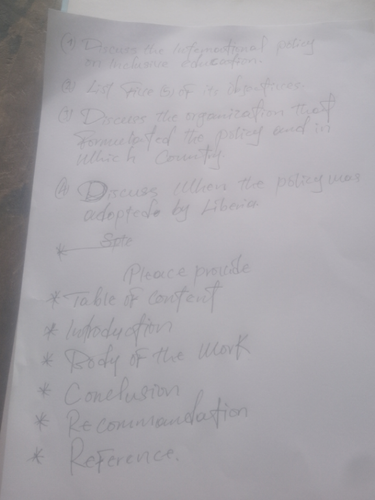 (1) Discuss the international policy
on inclusive education.
(2) List five of its objectives.
(3) Discuss the organization that
formulated the policy and in
which Country.
(4) Discuss When the policy was
adopted by Liberia
*
Please provide
* Table of content
* Introduction
* Body of the Work
* Conclusion
* Recommandation
* Reference.